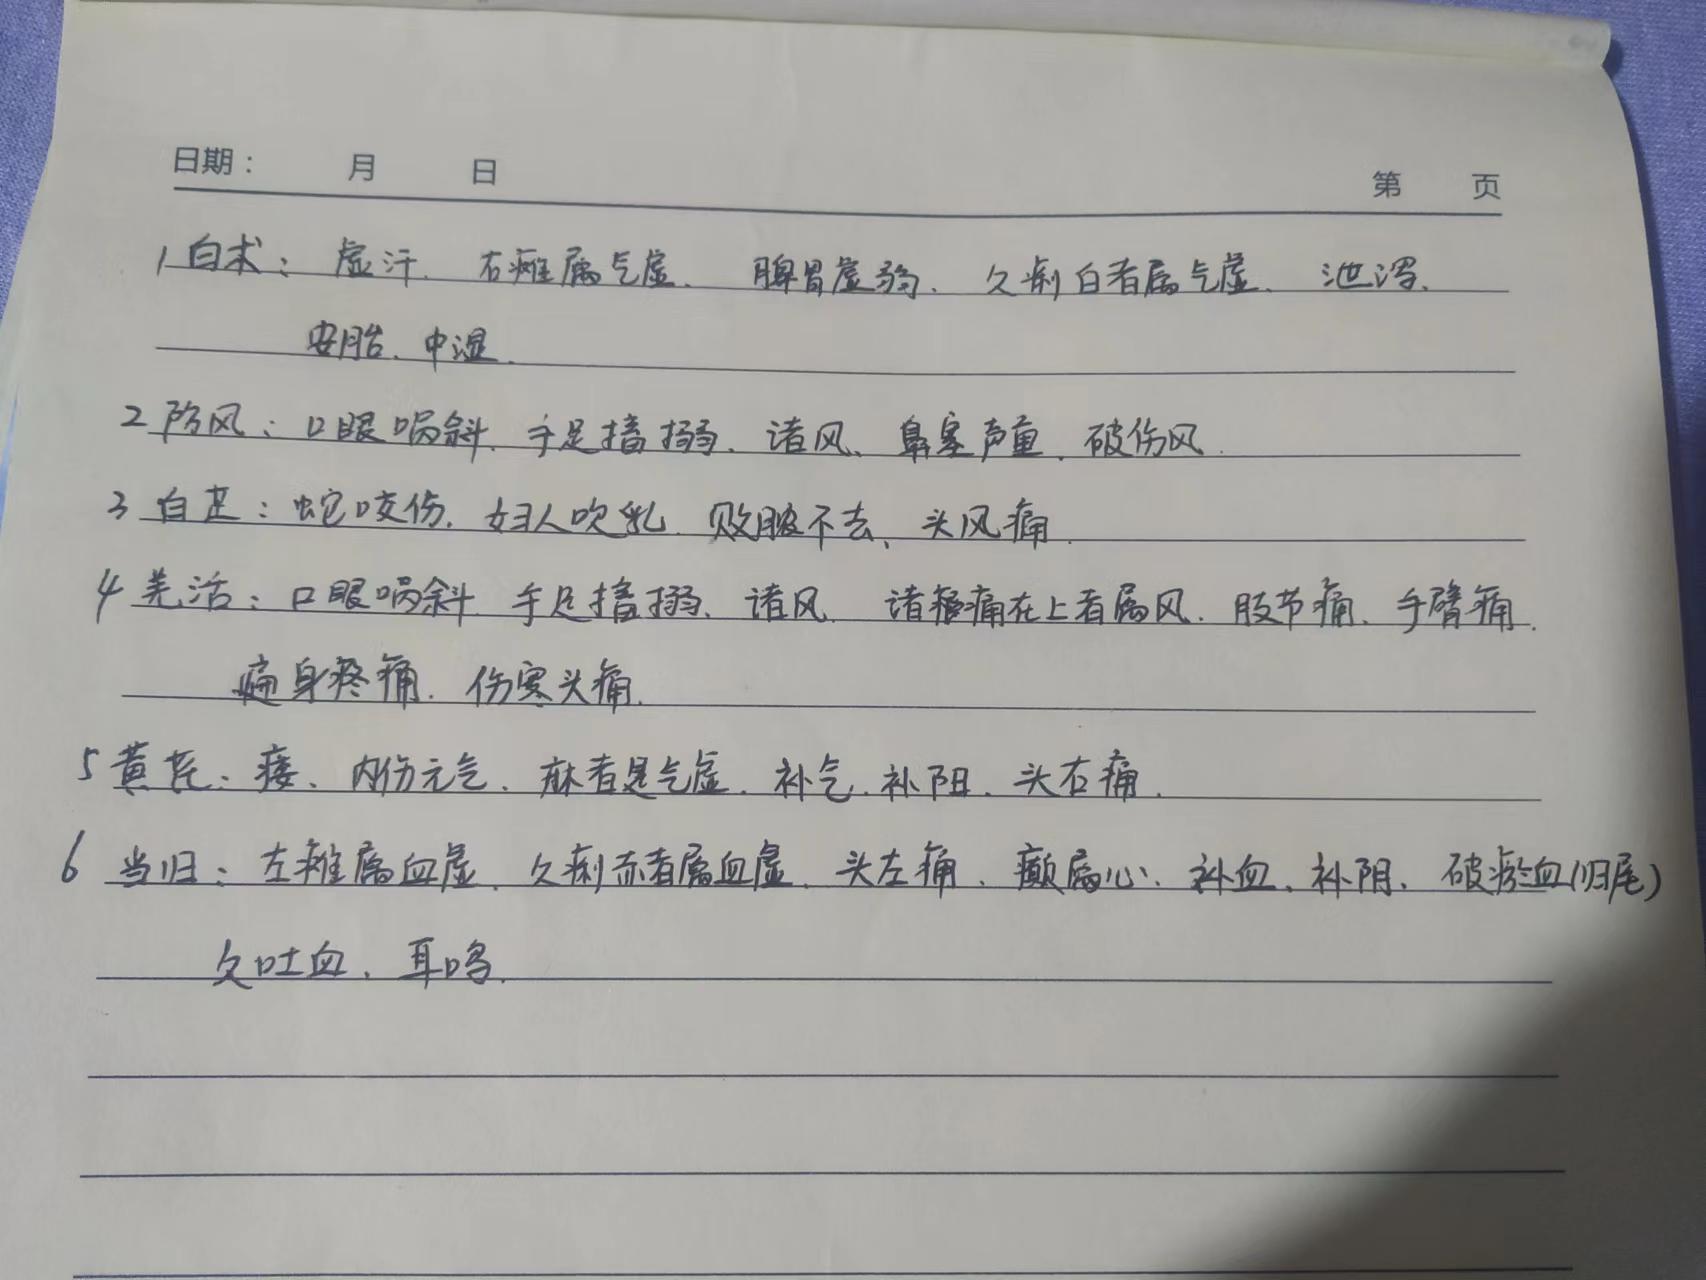 日期： 月 日 第 页
1 白术：虚汗、右瘫属气虚、脾胃虚弱、久痢白者属气虚、泄泻、
安胎、中湿、
2 防风：口眼㖞斜、手足搐搦、诸风、鼻塞声重、破伤风、
3 白芷：蛇咬伤、妇人吹乳、败脓不去、头风痛、
4 羌活：口眼㖞斜、手足搐搦、诸风、诸痛在上者属风、肢节痛、手臂痛、
遍身疼痛、伤寒头痛、
5 黄芪：痿、内伤元气、麻者是气虚、补气、补阳、头右痛、
6 当归：左瘫属血虚、久痢赤者属血虚、头左痛、癫属心、补血、补阴、破瘀血(归尾)
久吐血、耳鸣、